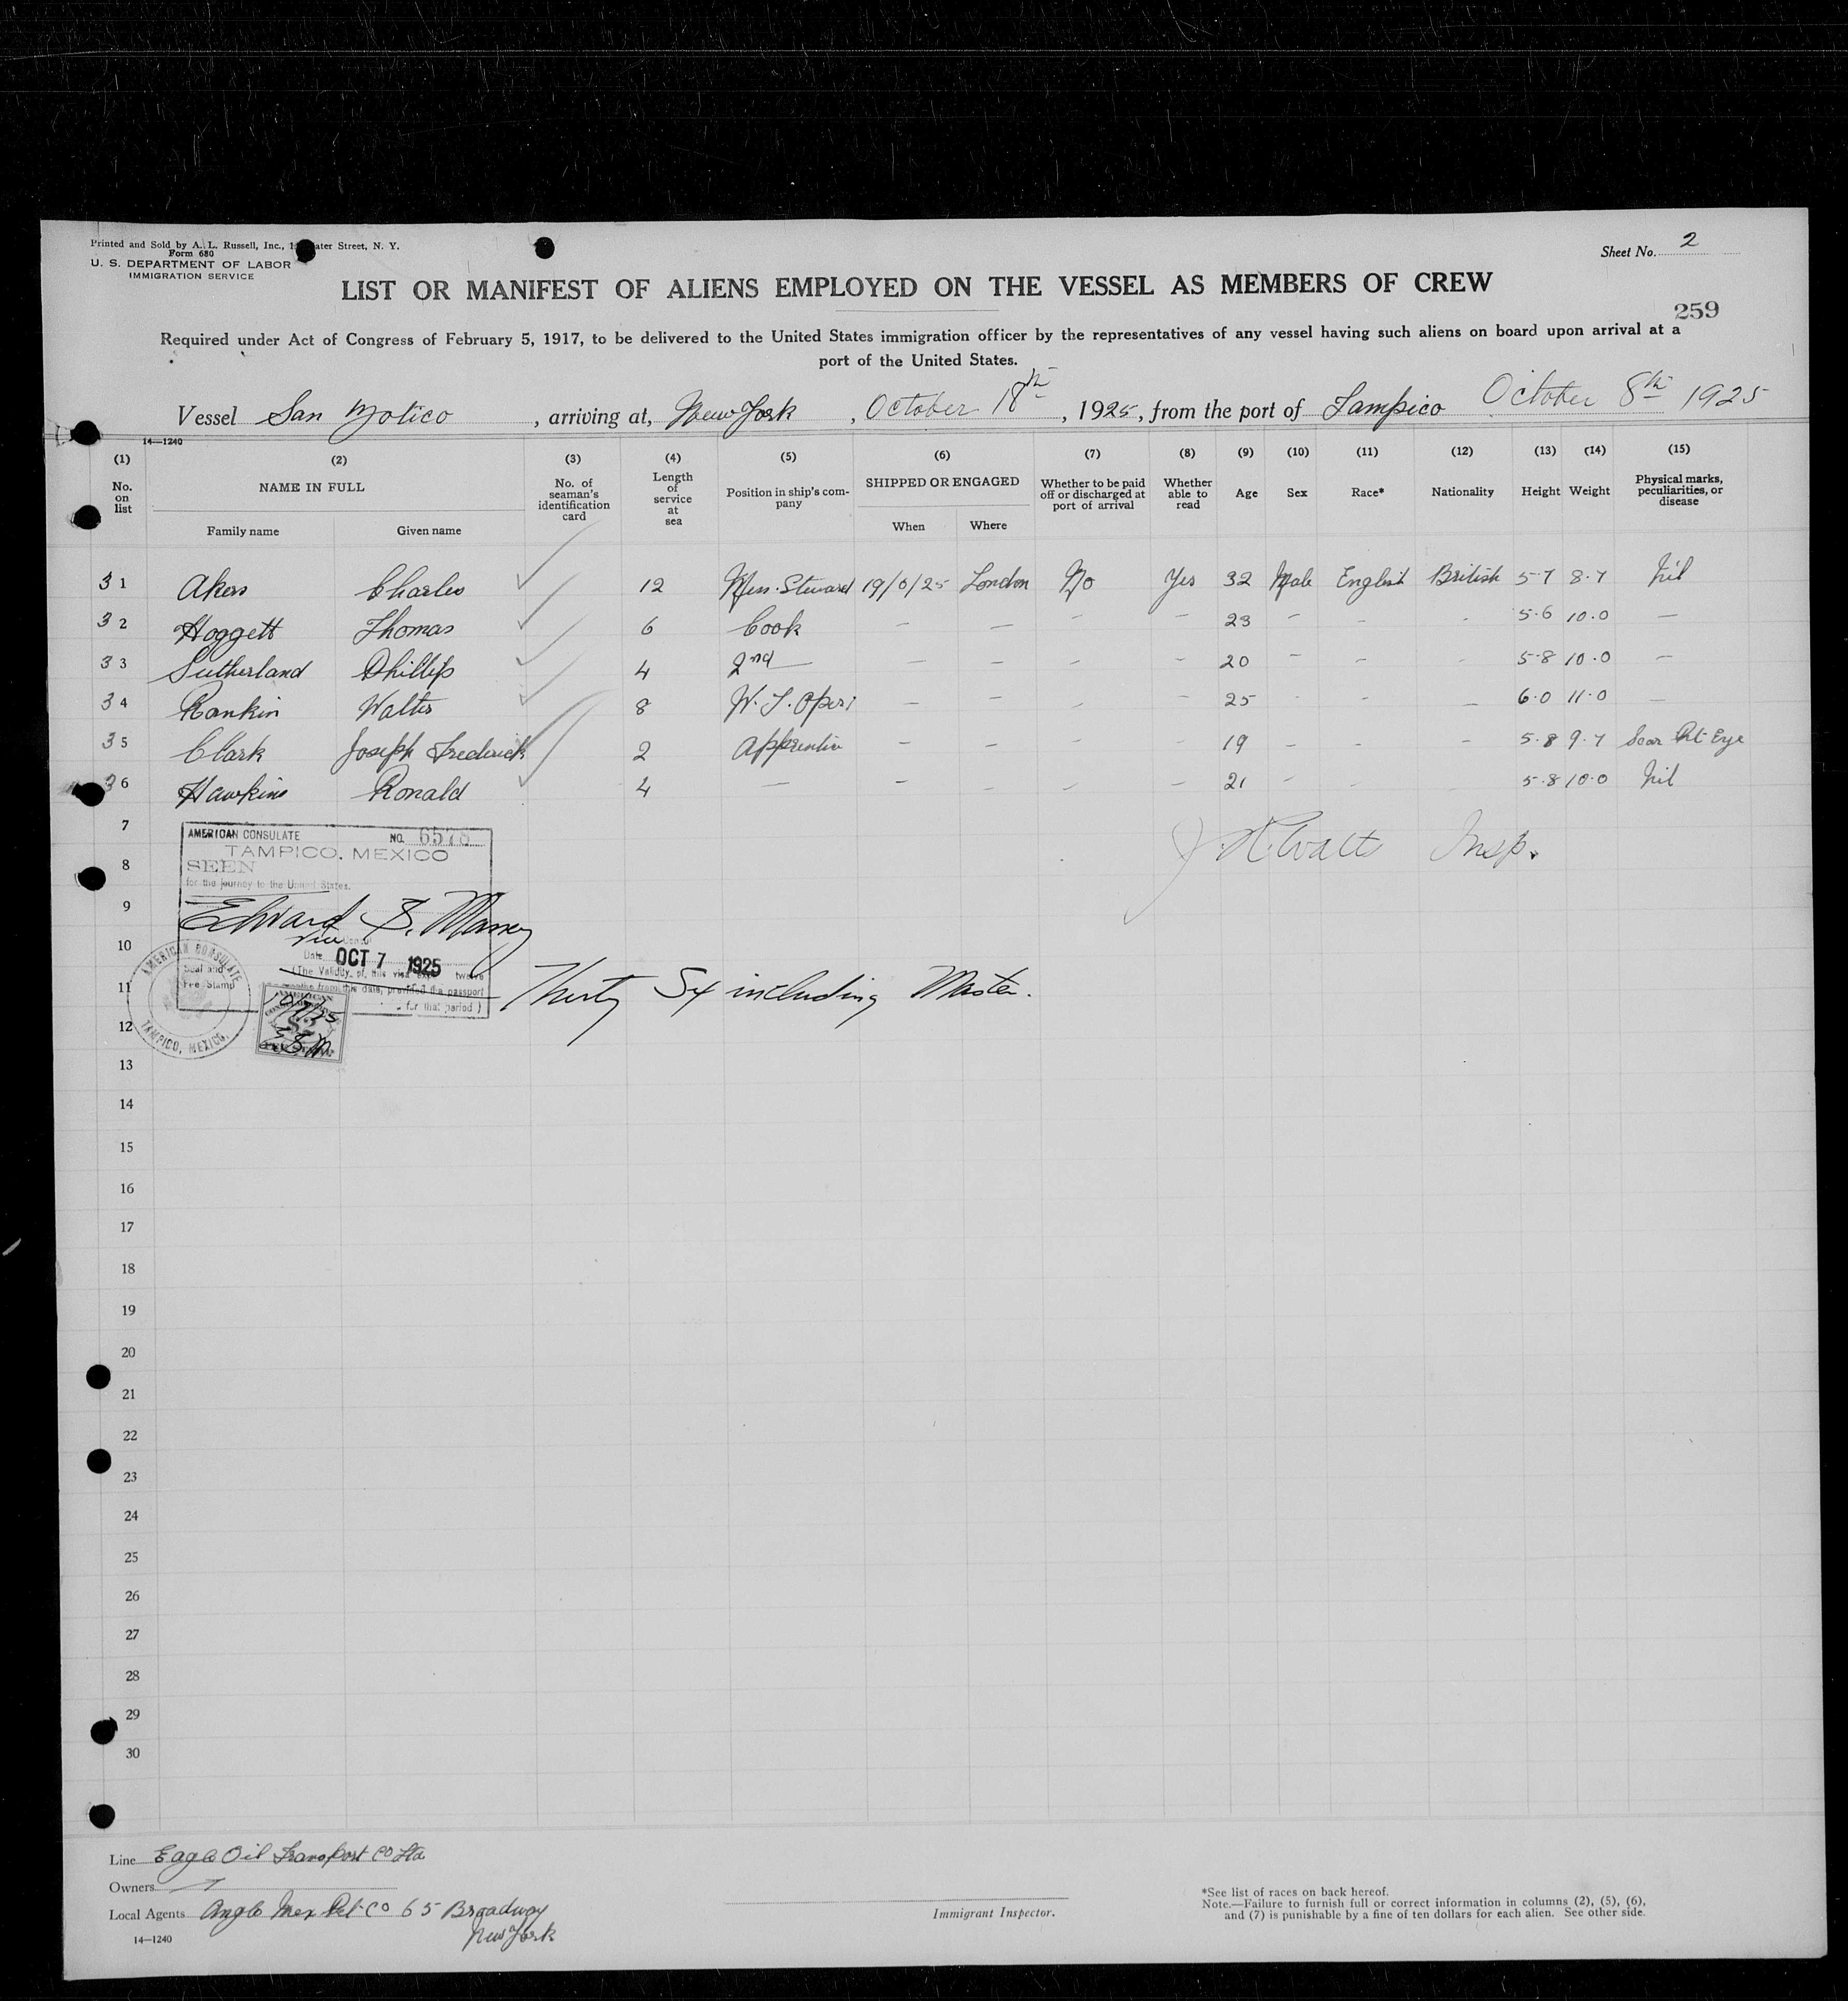 Printed and Sold by A. L. Russell, Inc., ater Street, N. Y.
Form 680
U. S. DEPARTMENT OF LABOR
IMMIGRATION SERVICE
Sheet No. 2
LIST OR MANIFEST OF ALIENS EMPLOYED ON THE VESSEL AS MEMBERS OF CREW
259
Required under Act of Congress of February 5, 1917, to be delivered to the United States immigration officer by the representatives of any vessel having such aliens on board upon arrival at a
port of the United States.
Vessel San , arriving at, New York , October 18th , 1925, from the port of Tampico October 8th 1925
14—1240
(1) (2) (3) (4) (5) (6) (7) (8) (9) (10) (11) (12) (13) (14) (15)
No. on list NAME IN FULL Family name Given name No. of seaman's identification card Length of service at sea Position in ship's company SHIPPED OR ENGAGED When Where Whether to be paid off or discharged at port of arrival Whether able to read Age Sex Race* Nationality Height Weight Physical marks, peculiarities, or disease
31 Akers Charles 12 Mess. Steward London No Yes 32 Male English British 5-7 8.7 Nil
32 Hoggett Thomas 6 Cook — — - — 23 - - - 5.6 10.0 —
33 Sutherland Phillip 4 2nd — — — - - 20 - - - 5-8 10.0 —
34 Rankin Walter 8 W. T. Oper — — - - 25 - - - 6.0 11.0 —
35 Clark Joseph Frederick 2 Apprentice — — - - 19 - - - 5.8 9.7 Scar Rt Eye
36 Hawkins Ronald 4 — — - - - 21 - - - 5.8 10.0 Nil
7
Insp.
AMERICAN CONSULATE NO. 6578
TAMPICO, MEXICO
8
SEEN
for the journey to the United States.
9
Edward S.
Vice Consul
10
Date OCT 7 1925
(The Validity of this visa twelve
months from this date, provided the passport
for that period)
AMERICAN CONSULATE
Seal and
Fee Stamp
TAMPICO, MEXICO.
11 Thirty Six including Master.
12
13
14
15
16
17
18
19
20
21
22
23
24
25
26
27
28
29
30
Line Eagle Oil Transport Co Ltd
Owners
Local Agents Anglo Mex Pet. Co 65 Broadway
New York
14—1240
Immigrant Inspector.
*See list of races on back hereof.
Note.—Failure to furnish full or correct information in columns (2), (5), (6),
and (7) is punishable by a fine of ten dollars for each alien. See other side.